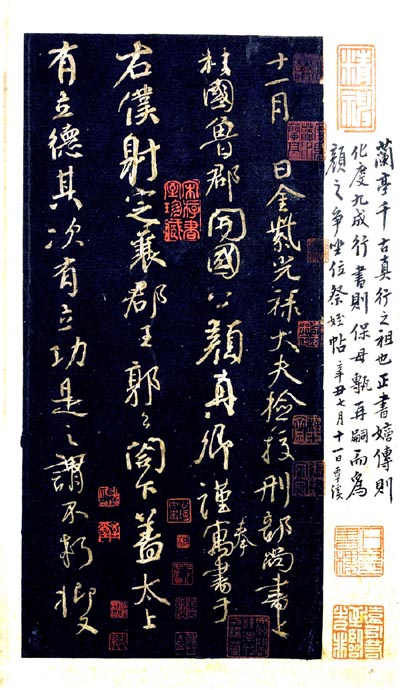 蘭亭千古真行之祖也正書嬗傳則
化度九成行書則保母甎再嗣而為
顏之爭坐位祭姪帖 辛丑七月十一日覃溪
十一月 日金紫光祿大夫檢校刑部尚書上
柱國魯郡開國公顏真卿謹奉寓書于
右僕射定襄郡王郭公閣下蓋太上
有立德其次有立功是之謂不朽抑又
宋存書室珍藏